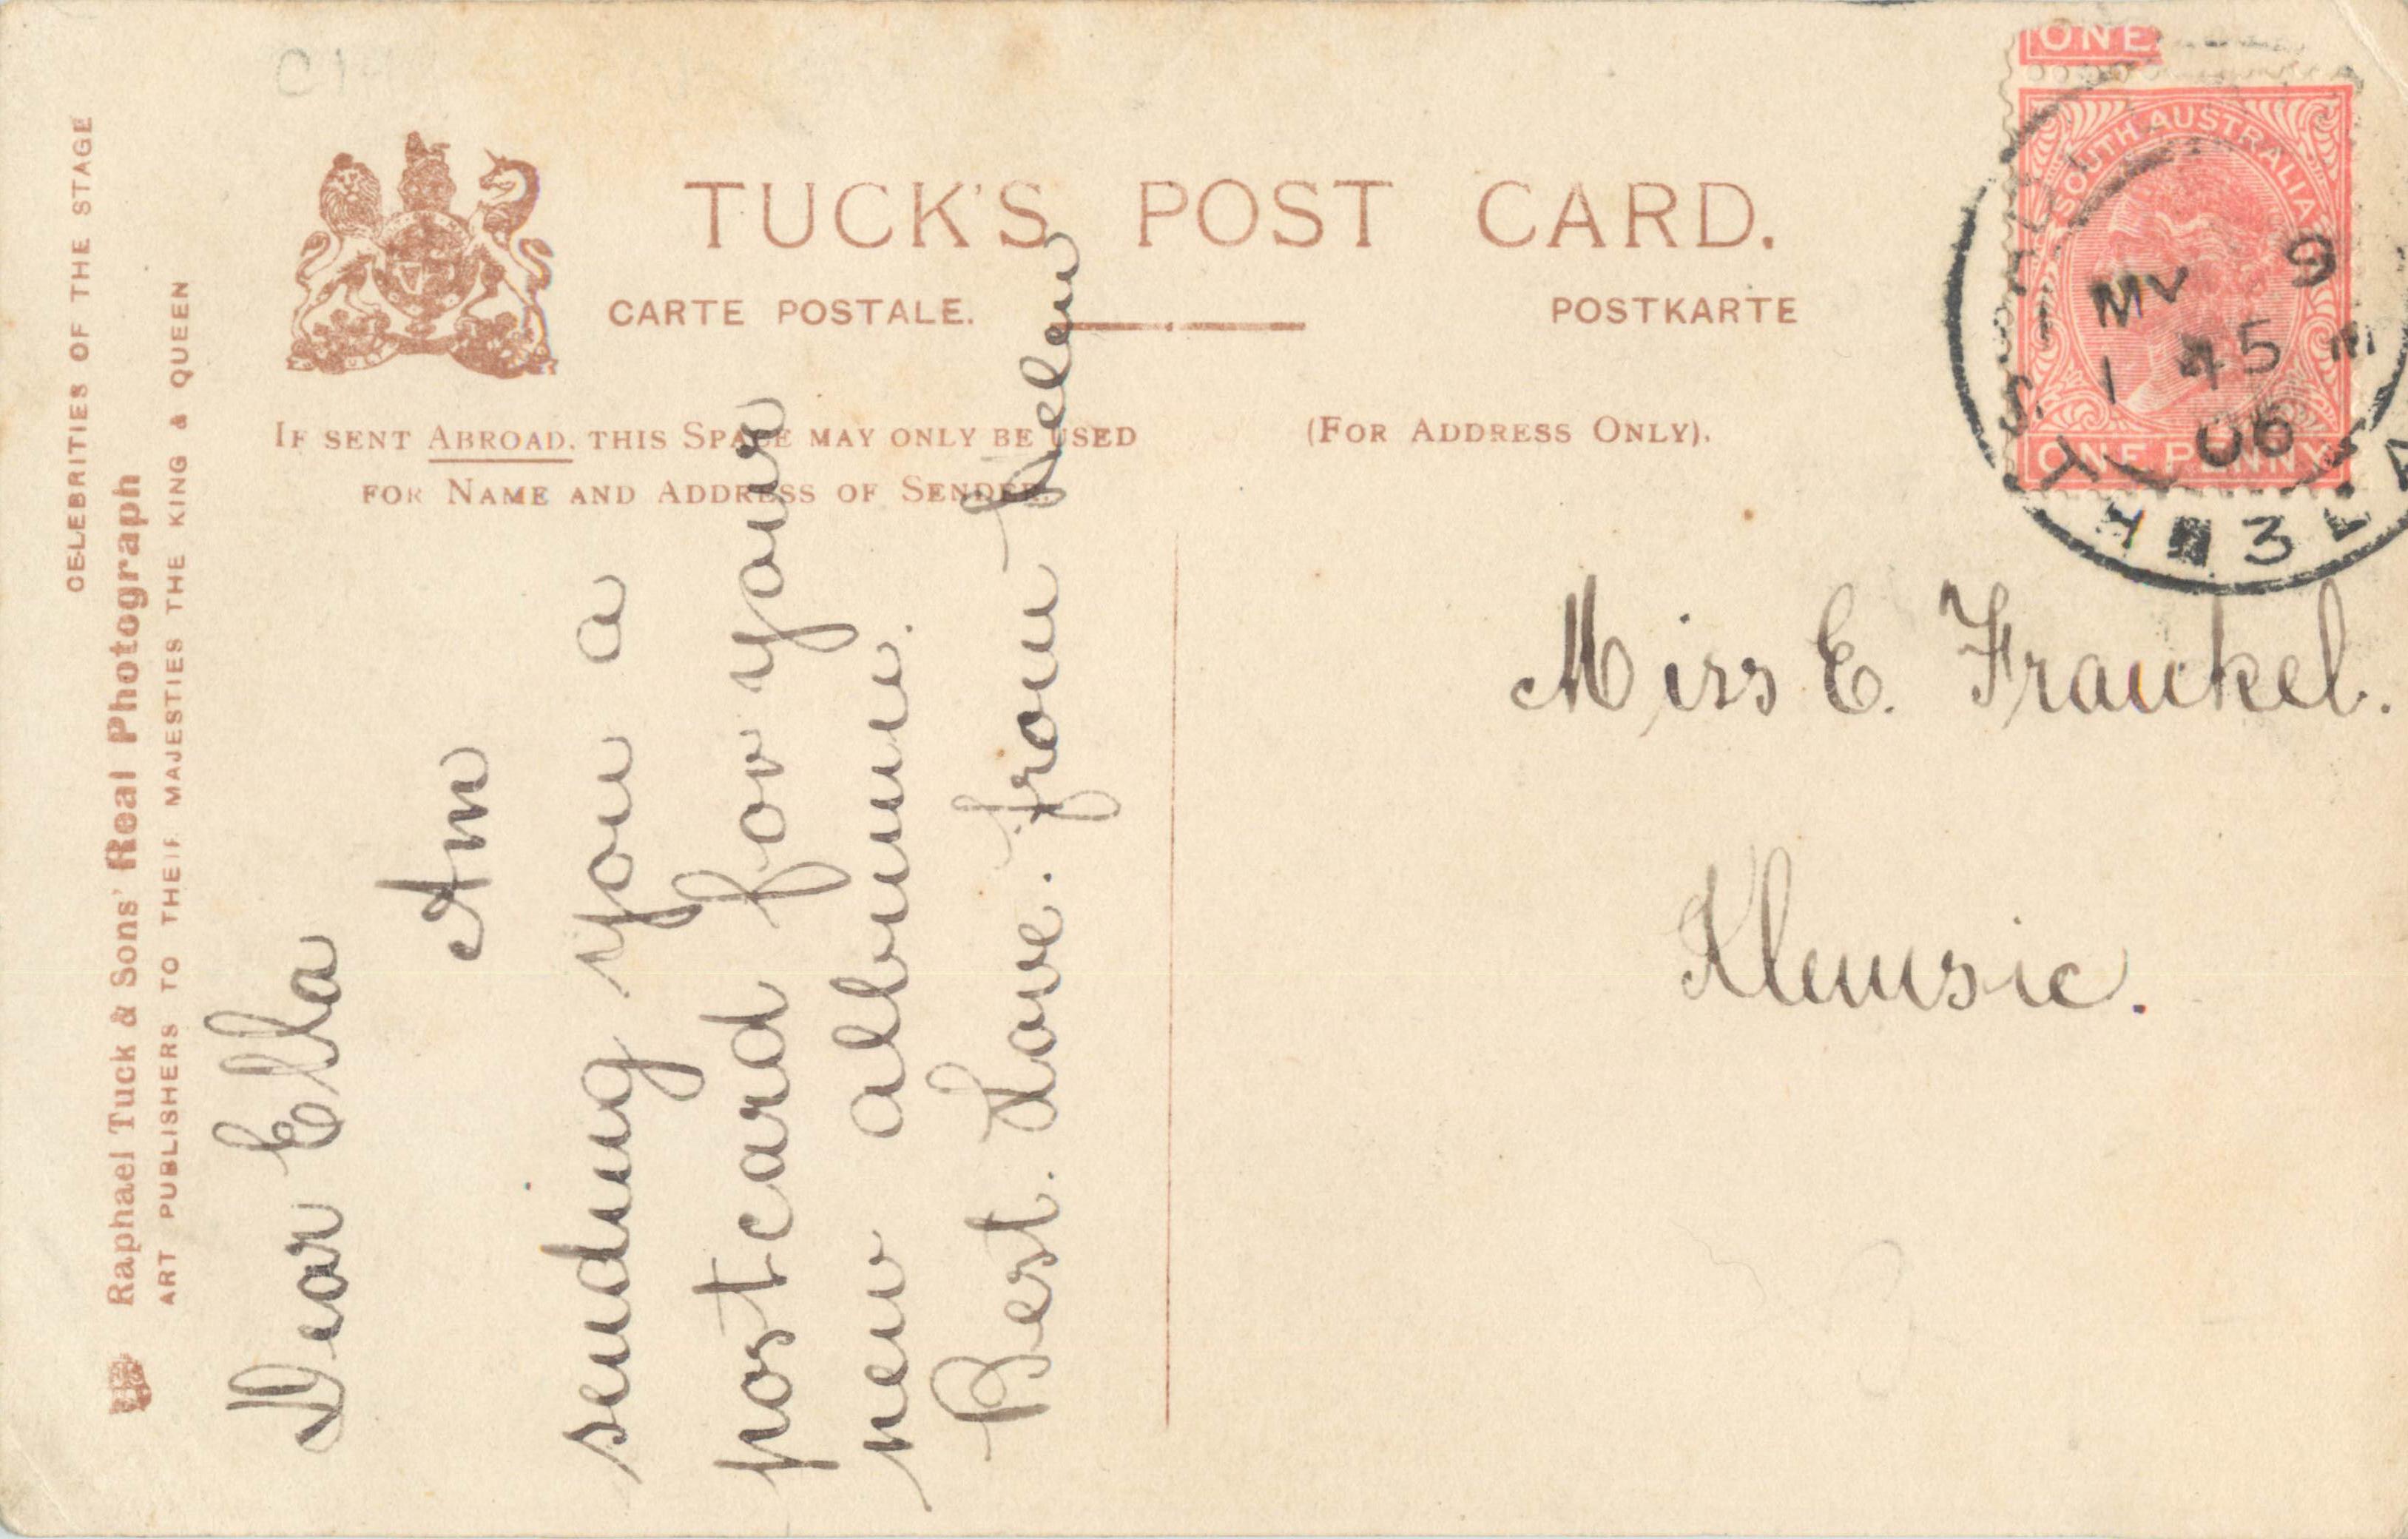 CELEBRITIES OF THE STAGE
Raphael Tuck & Sons' Real Photograph
ART PUBLISHERS TO THEIR MAJESTIES THE KING & QUEEN
TUCK'S POST CARD.
CARTE POSTALE.
POSTKARTE
IF SENT ABROAD, THIS SPACE MAY ONLY BE USED
FOR NAME AND ADDRESS OF SENDER.
(FOR ADDRESS ONLY).
Dear Ella
Am
sending you a
postcard for your
new albumn.
Best. Love. from Helen
Miss E. Frankel.
Klemsic.
ONE
SOUTH AUSTRALIA
ONE PENNY
MY 9
1 45
06
3